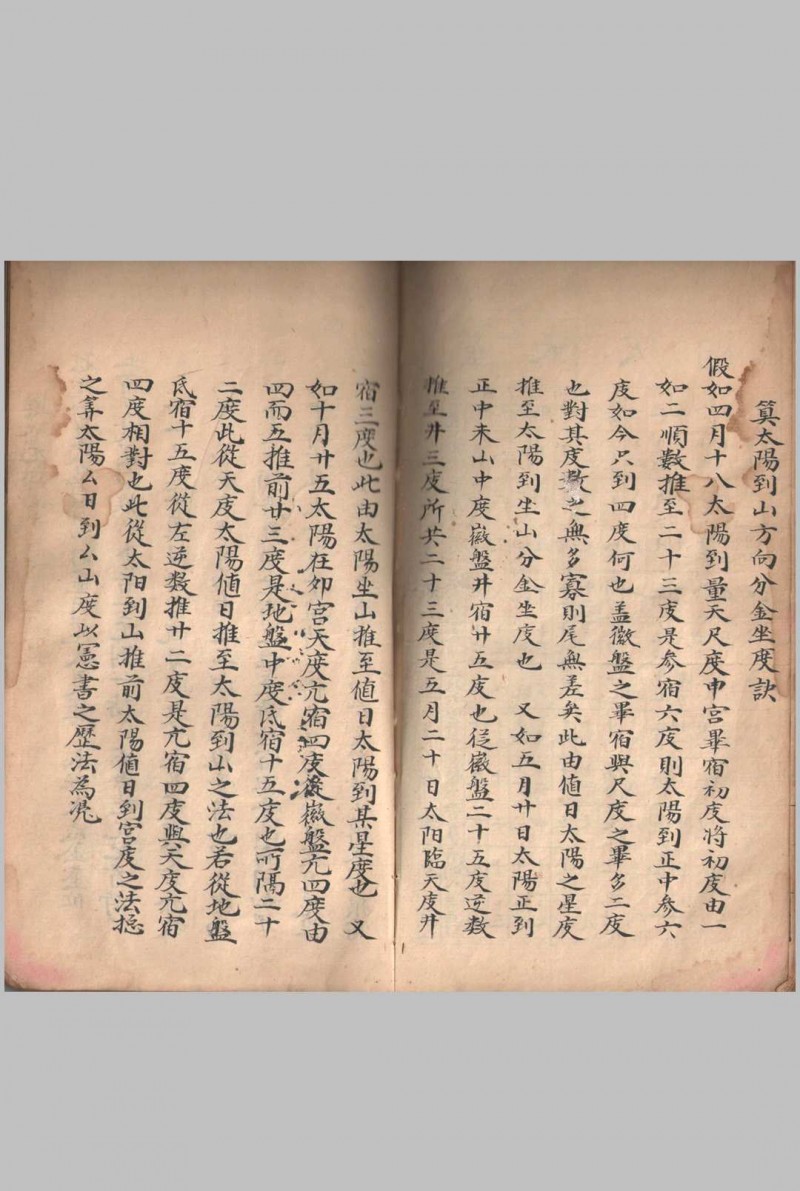 算太陽到山方向分金坐度訣
假如四月十八太陽到量天尺度申宮畢宿初度將初度由一
如二順數推至二十三度是参宿六度則太陽到正中参六
度如今只到四度何也盖徽盤之畢宿與尺度之畢多二度
也對其度数之無多寡則尾無差矣此由値日太陽之星度
推至太陽到坐山分金坐度也 又如五月廿日太陽正到
正中未山中度徽盤井宿廿五度也從徽盤二十五度逆数
推至井三度所共二十三度是五月二十日太阳臨天度井
宿三度也此由太陽坐山推至値日太陽到某星度也 又
如十月廿五太陽在卯宮天度亢宿四度從徽盤亢四度由
四而五推前廿三度是地盤中度氐宿十五度也所隔二十
二度此從天度太陽値日推至太陽到山之法也若從地盤
氐宿十五度從左逆数推廿二度是亢宿四度與天度亢宿
四度相對也此從太阳到山推前太陽値日到宮度之法捴
之筭太陽厶日到厶山度以憲書之歷法為凴